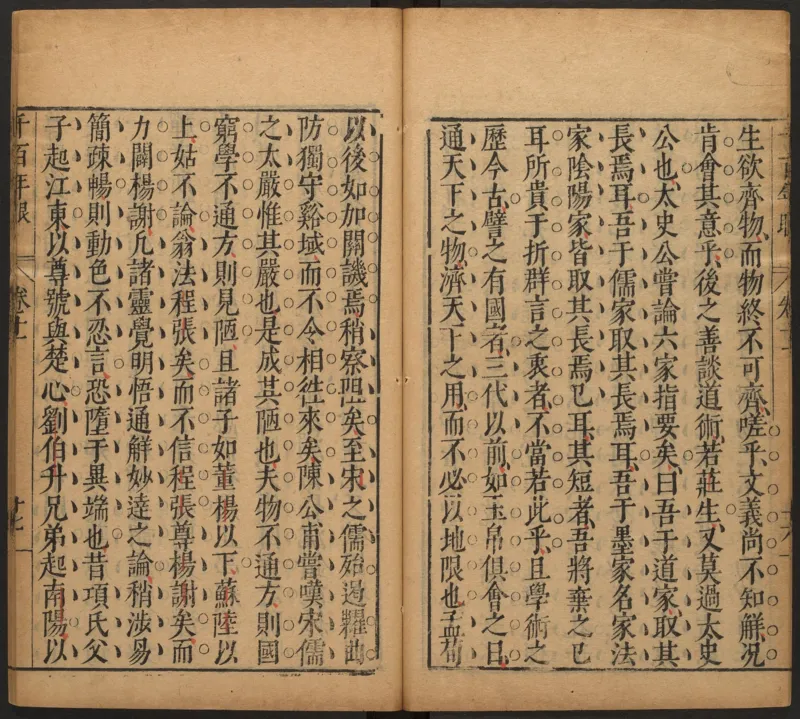 生欲齊物而物終不可齊嗟乎文義尚不知解況
肯會其意乎後之善談道術若莊生又莫過太史
公也太史公嘗論六家指要矣曰吾于道家取其
長焉耳吾于儒家取其長焉耳吾于墨家名家法
家陰陽家皆取其長焉已耳其短者吾將棄之已
耳所貴于折群言之衷者不當若此乎且學術之
歷今古譬之有國者三代以前如玉帛俱會之日
通天下之物濟天下之用而不必以地限也孟荀
以後如加關譏焉稍察阻矣至宋之儒始過糴曲
防獨守谿域而不令相徃來矣陳公甫嘗嘆宋儒
之太嚴惟其嚴也是成其陋也夫物不通方則國
窮學不通方則見陋且諸子如董楊以下蘇陸以
上姑不論翁法程張矣而不信程張尊楊謝矣而
力闢楊謝凡諸靈覺明悟通解妙達之論稍涉易
簡疎暢則動色不忍言恐墮于異端也昔項氏父
子起江東以尊號與楚心劉伯升兄弟起南陽以
千百年眼 卷十一 十七